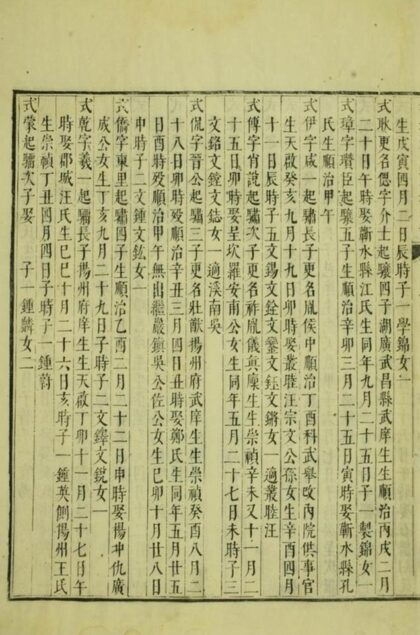 生戊寅四月二日辰時子一學錦女一
式耿更名偲字介士起驤四子湖廣武昌縣武庠生生順治丙戌二月
二十日午時娶蘄水縣江氏生同年九月二十五日子一製錦女一
式璋字瓚臣起驤五子生順治辛卯三月二十五日寅時娶蘄水縣孔
氏生順治甲午
式伊字咸一起驌長子更名胤侯中順治丁酉科武舉改內院供事官
生天啟癸亥九月十九日卯時娶叢睦汪宗文公孫女生辛酉四月
十一日辰時子五文錫文銓文鑾文鈺文鏘女一適叢睦汪
式傅字肖說起驌次子更名祚胤儀真廩生生崇禎辛未又十一月二
十五日卯時娶呈坎羅安南公女生同年五月二十七日未時子三
文銘文鏜文鋕女一適溪南吳
式侃字晉公起驌三子更名壯猷揚州府武庠生生崇禎癸酉八月二
十八日卯時歿順治辛丑三月四日丑時娶鄭氏生同年五月廿五
日酉時歿順治甲午無出繼巖鎮吳公佐公女生己卯十月廿八日
申時子二文鍾文鈜女一
式僑字東里起驌四子生順治乙酉二月二十二日申時娶揚州仇廣
成公女生丁亥九月二十九日子時子二文鐸文銳女一
式乾字羲一起驌長子揚州府庠生生天啟丁卯十一月二十七日午
時娶鄆城汪氏生己巳十月二十六日亥時子一鍾英側揚州王氏
生崇禎丁丑四月四日子時子一鍾蔚
式蒙起驌次子娶 子一鍾麟女二